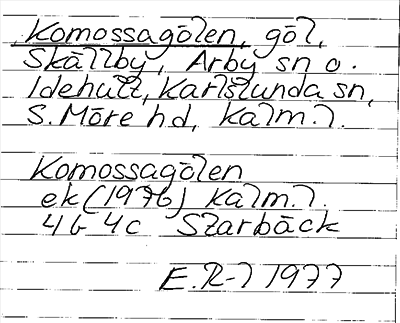 Komossagölen, göl,
Skällby, Arby sn o.
Idehult, Karlslunda sn,
S. Möre hd, Kalm. l.
Komossagölen
ek (1976) Kalm. l.
4 G 4c Starbäck
E. R-l 1977